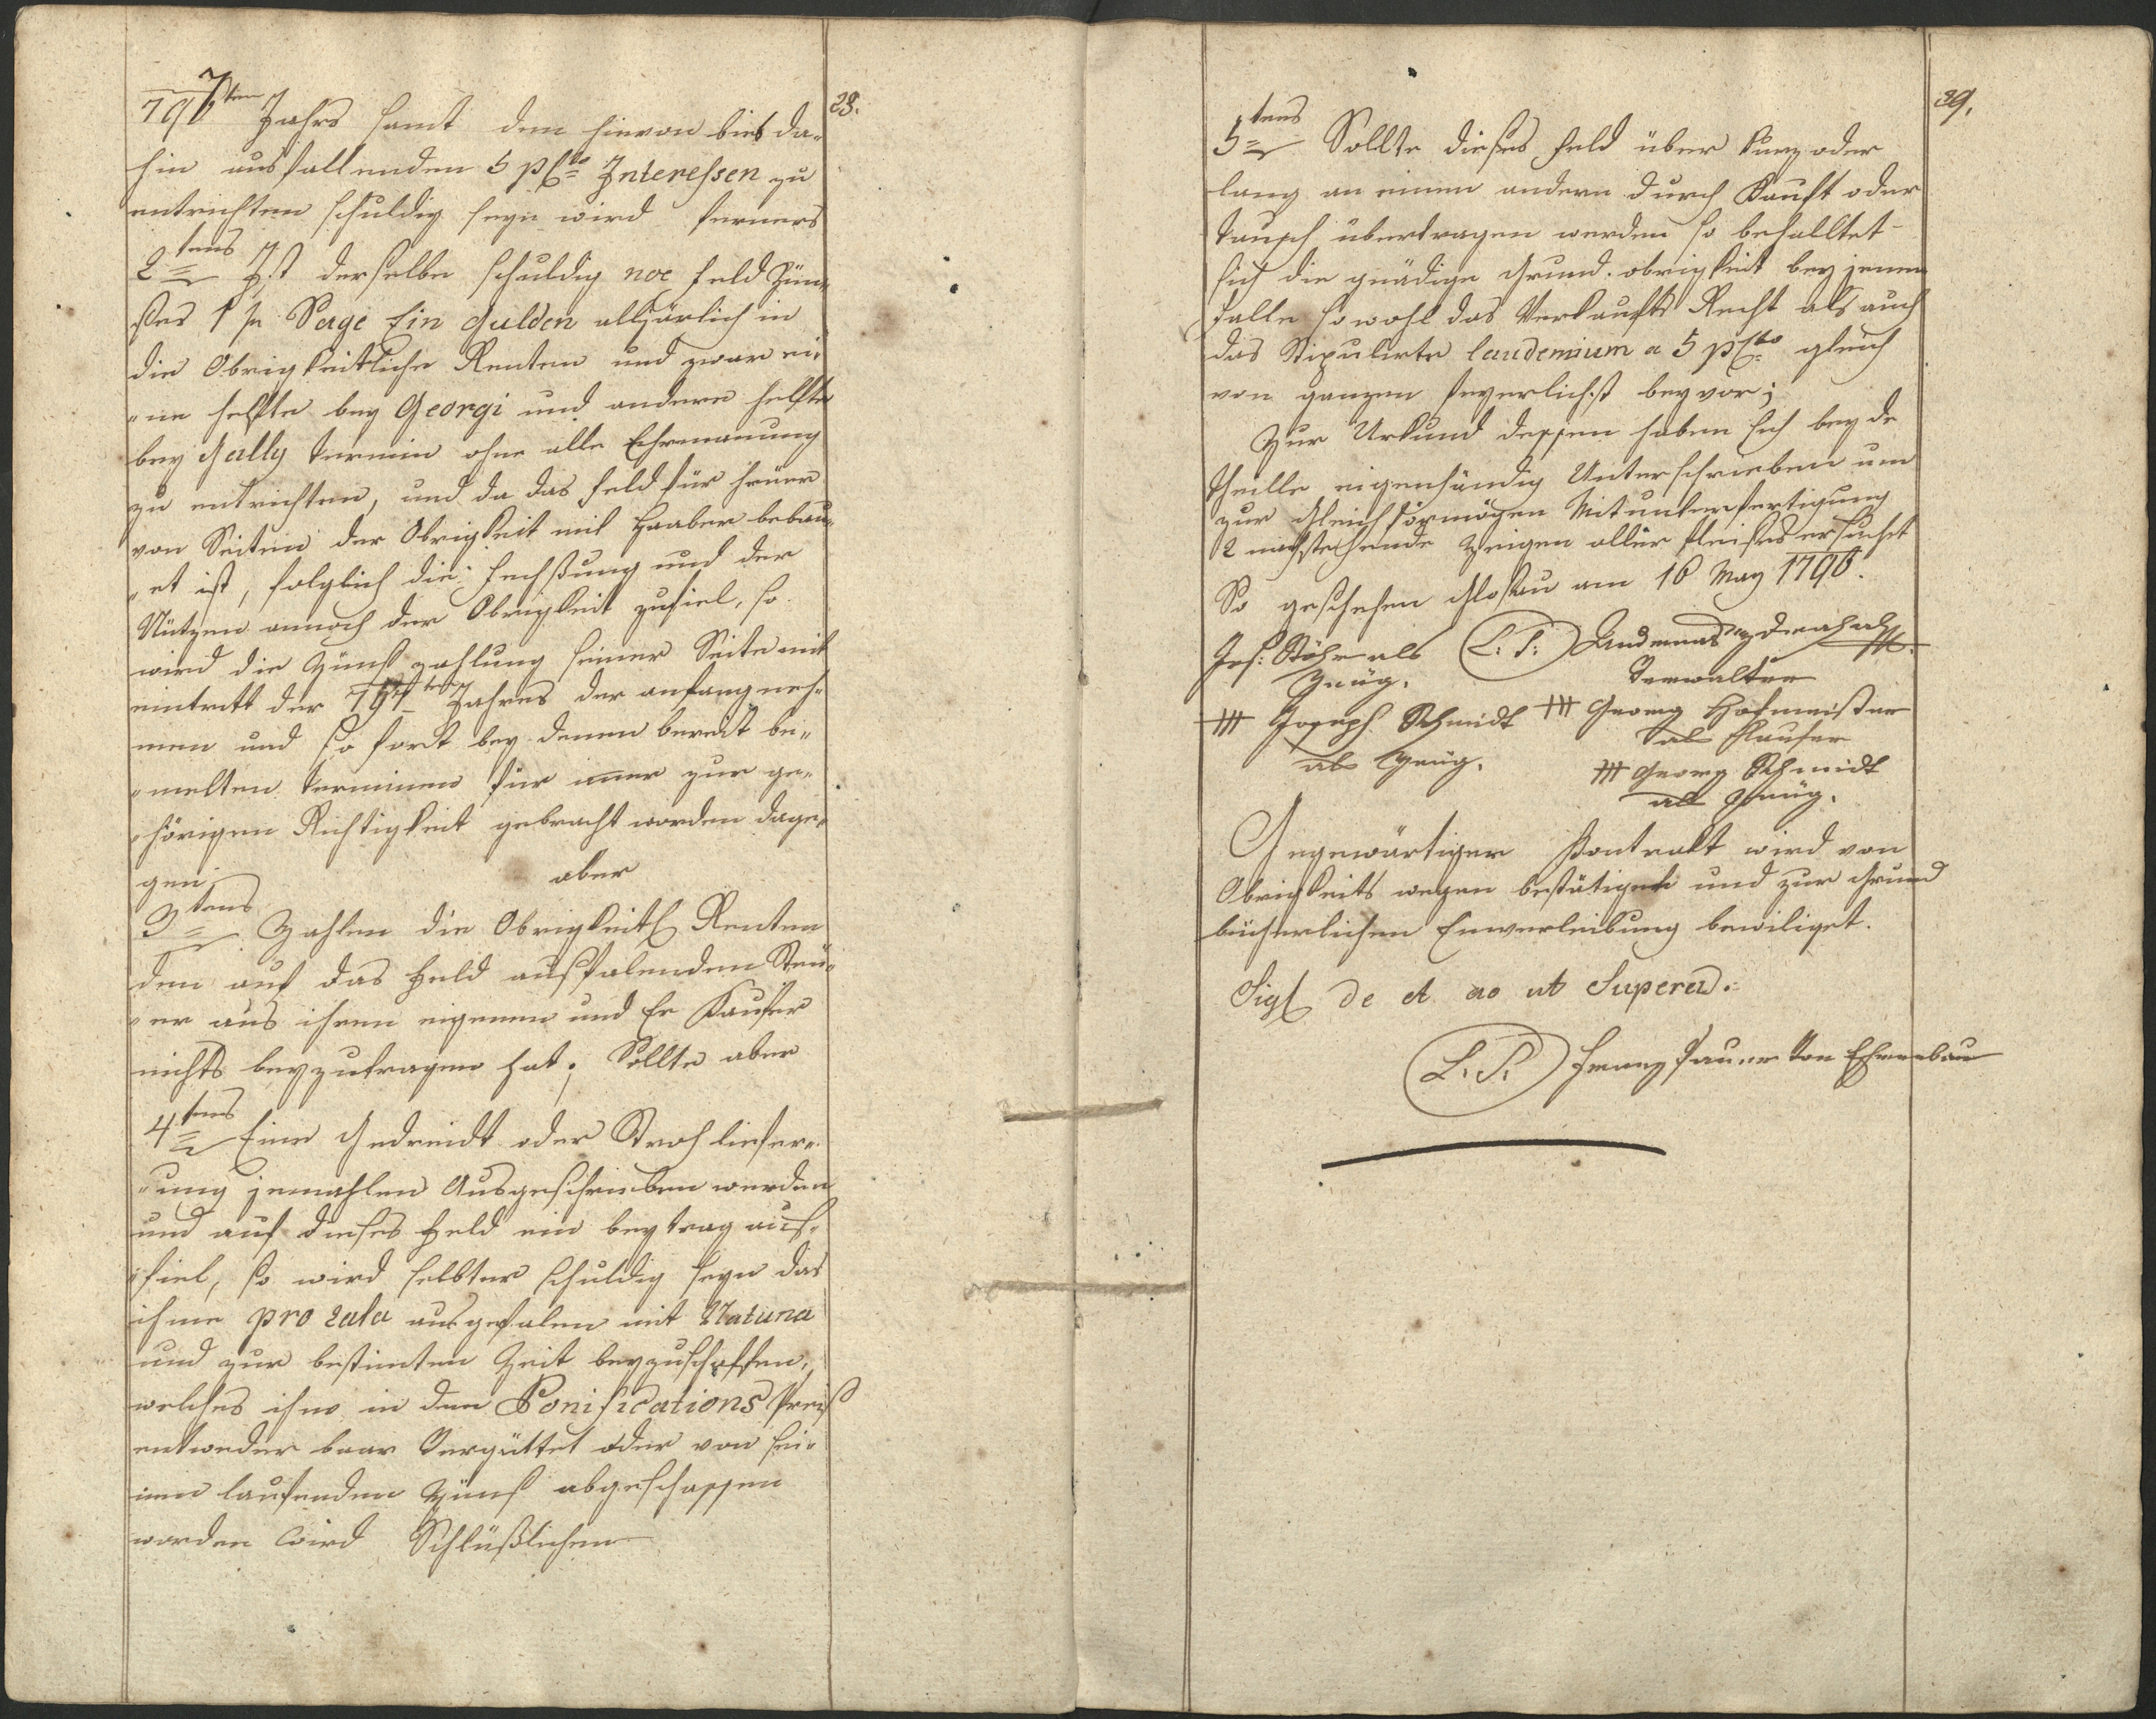 28.
797ten Jahrs samt dem hievon bies da-
hin ausfallenden 5 pCto Interessen zu
entrichten schuldig seyn wird ferners
2tens Ist derselbe schuldig noe Feld Zün-
ses 1 fl Sage Ein Gulden alljärlich in
die Obrigkeitliche Renten und zwar ei-
"ne helfte bey Georgi und andere helfte
bey Gally termin ohne alle Ehrmanung
zu entrichten, und da das Feld für heuer
von Seiten der Obrigkeit mit Haaber bebau-
"et ist, folglich die Fechsung und der
Nützen annoch der Obrigkeit zufiel, so
wird die Zünß zahlung seiner Seite mit
eintritt der 797ten Jahres der anfang neh-
men und so fort bey denen bereit be-
"melten terminen für imer zur ge-
"hörigen Richtigkeit gebracht worden dage-
gen aber
3tens Zahlen die Obrigkeitl Renten
den auf das Feld ausfalenden Steü-
"er aus ihren eigenen und Er Kaufer
nichts beyzutragen hat; Sollte aber
4tens Eine Gedreidt oder Stroh liefer-
"ung jemahlen Ausgeschrieben werden
und auf dieses Feld ein beytrag aus-
"fiel, so wird selbter schuldig seyn das
ihme pro rata ausgefalen mit Natura
und zur bestimten Zeit beyzuschaffen,
welches ihm in den Bonifications Preiß
entweder baar Vergüttet oder von sei-
nen laufenden Zünß abgeschassen
worden wird Schlüßlichen
39.
5tens Sollte dieses Feld über kurz oder
lang an einen andern durch Kauft oder
Tausch übertragen werden so behalltet
sich die gnädige Grund. obrigkeit bey jenen
Falle sowohl das Verkaufts Recht als auch
das Stipulirte laudemium a 5 pCto gleich
von ganzen feyerlichst bey vor;
Zur Urkund dessen haben sich beyde
Theille eigenhändig Unterschrieben um
zur Gleichförmögen Mitunterfertigung
2 nachstehende Zeigen aller fleißes ersucht
So geschehen Glosau am 16 May 1796.
Jos: Stöhr als (L. S.)
Zeüg. Verwalter
+++ Joseph Schmidt +++ Georg Hofmeister
als Zeüg. als Kaufer
+++ Georg Schmidt
als Zeüg.
Gegenwärtiger Kontrakt wird von
Obrigkeits wegen bestätiget und zur Grund
bücherlichen Einverleibung bewiliget.
Sigl de et ao ut Supera.
(L. S.) Franz Pauer Von Ehrenbau